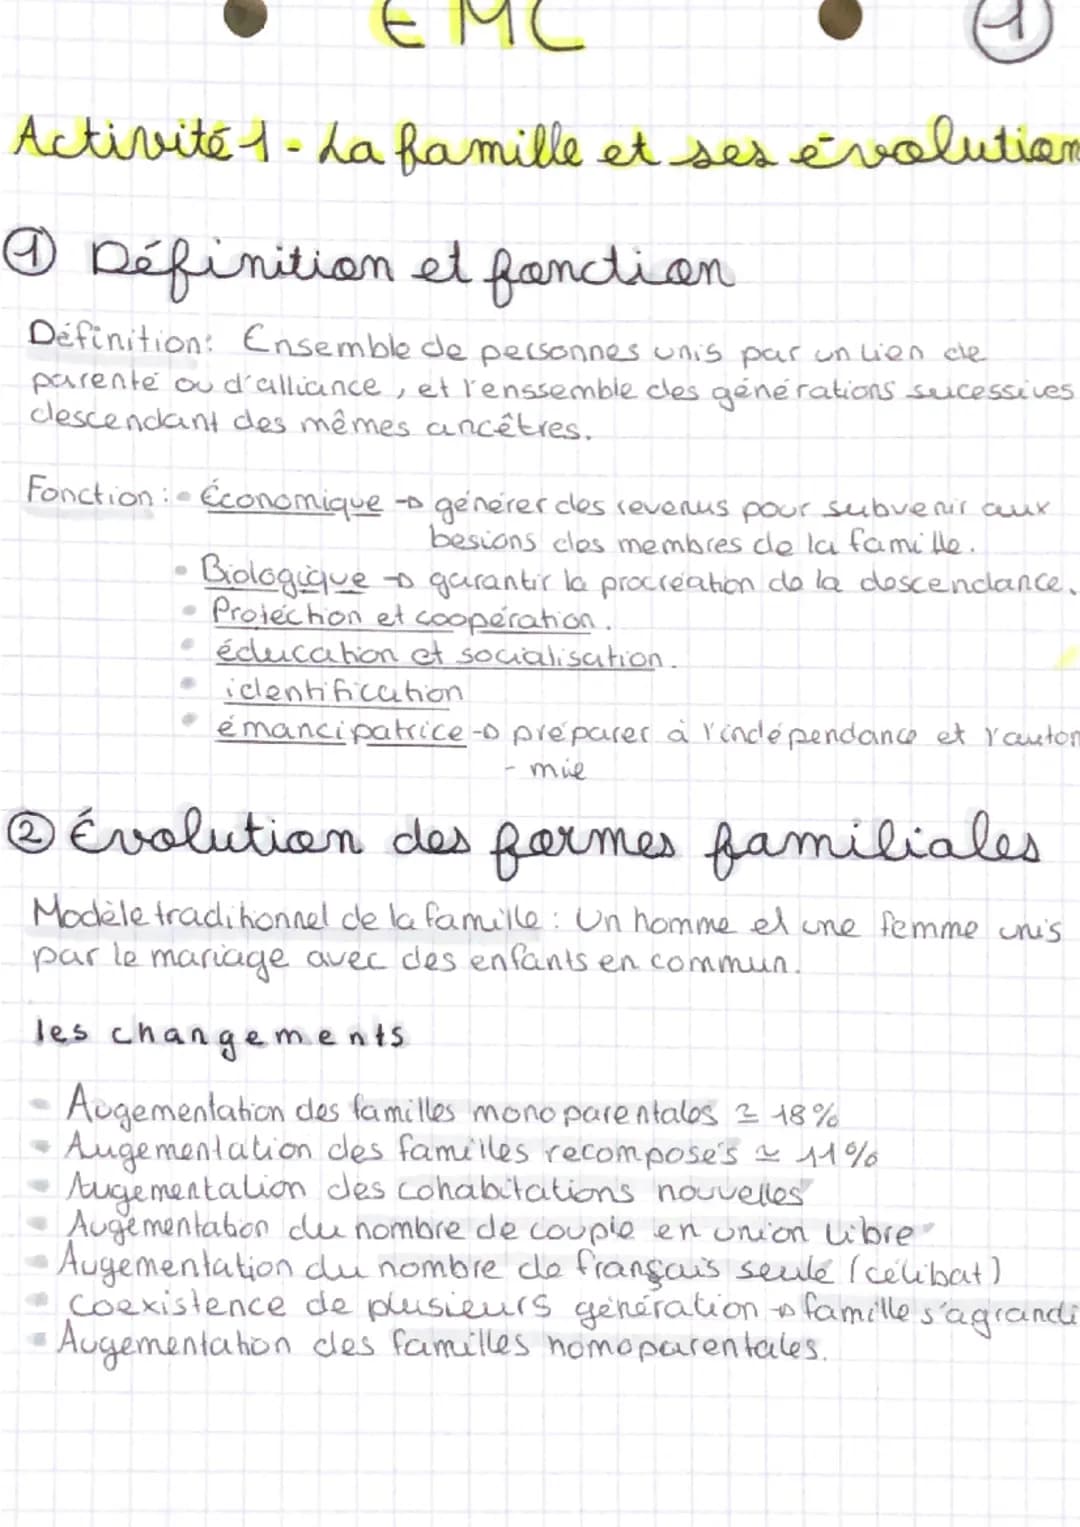 EMC
1
Activité 1 - La famille et ses évolution
① Définition et fonction
Définition: Ensemble de personnes unis par un lien de
parenté ou d'alliance, et l'enssemble des générations sucessives
descendant des mêmes ancêtres.
Fonction: • Économique → générer des revenus pour subvenir aux
besions des membres de la famille.
• Biologique → garantir la procréation de la descendance.
• Protéction et coopération.
• éducation et socialisation.
• identification
• émancipatrice → préparer à l'indépendance et l'auton
- mie
② Évolution des formes familiales
Modèle traditionnel de la famille: Un homme et une femme unis
par le mariage avec des enfants en commun.
les changements
• Augementation des familles monoparentales ≃ 18%
• Augementation des familles recomposés ≃ 11%
• Augementation des cohabitations nouvelles
• Augementation du nombre de couple en union libre
• Augementation du nombre de français seule (célibat)
• Coexistence de plusieurs génération → famille s'agrandi
• Augementation des familles homoparentales.